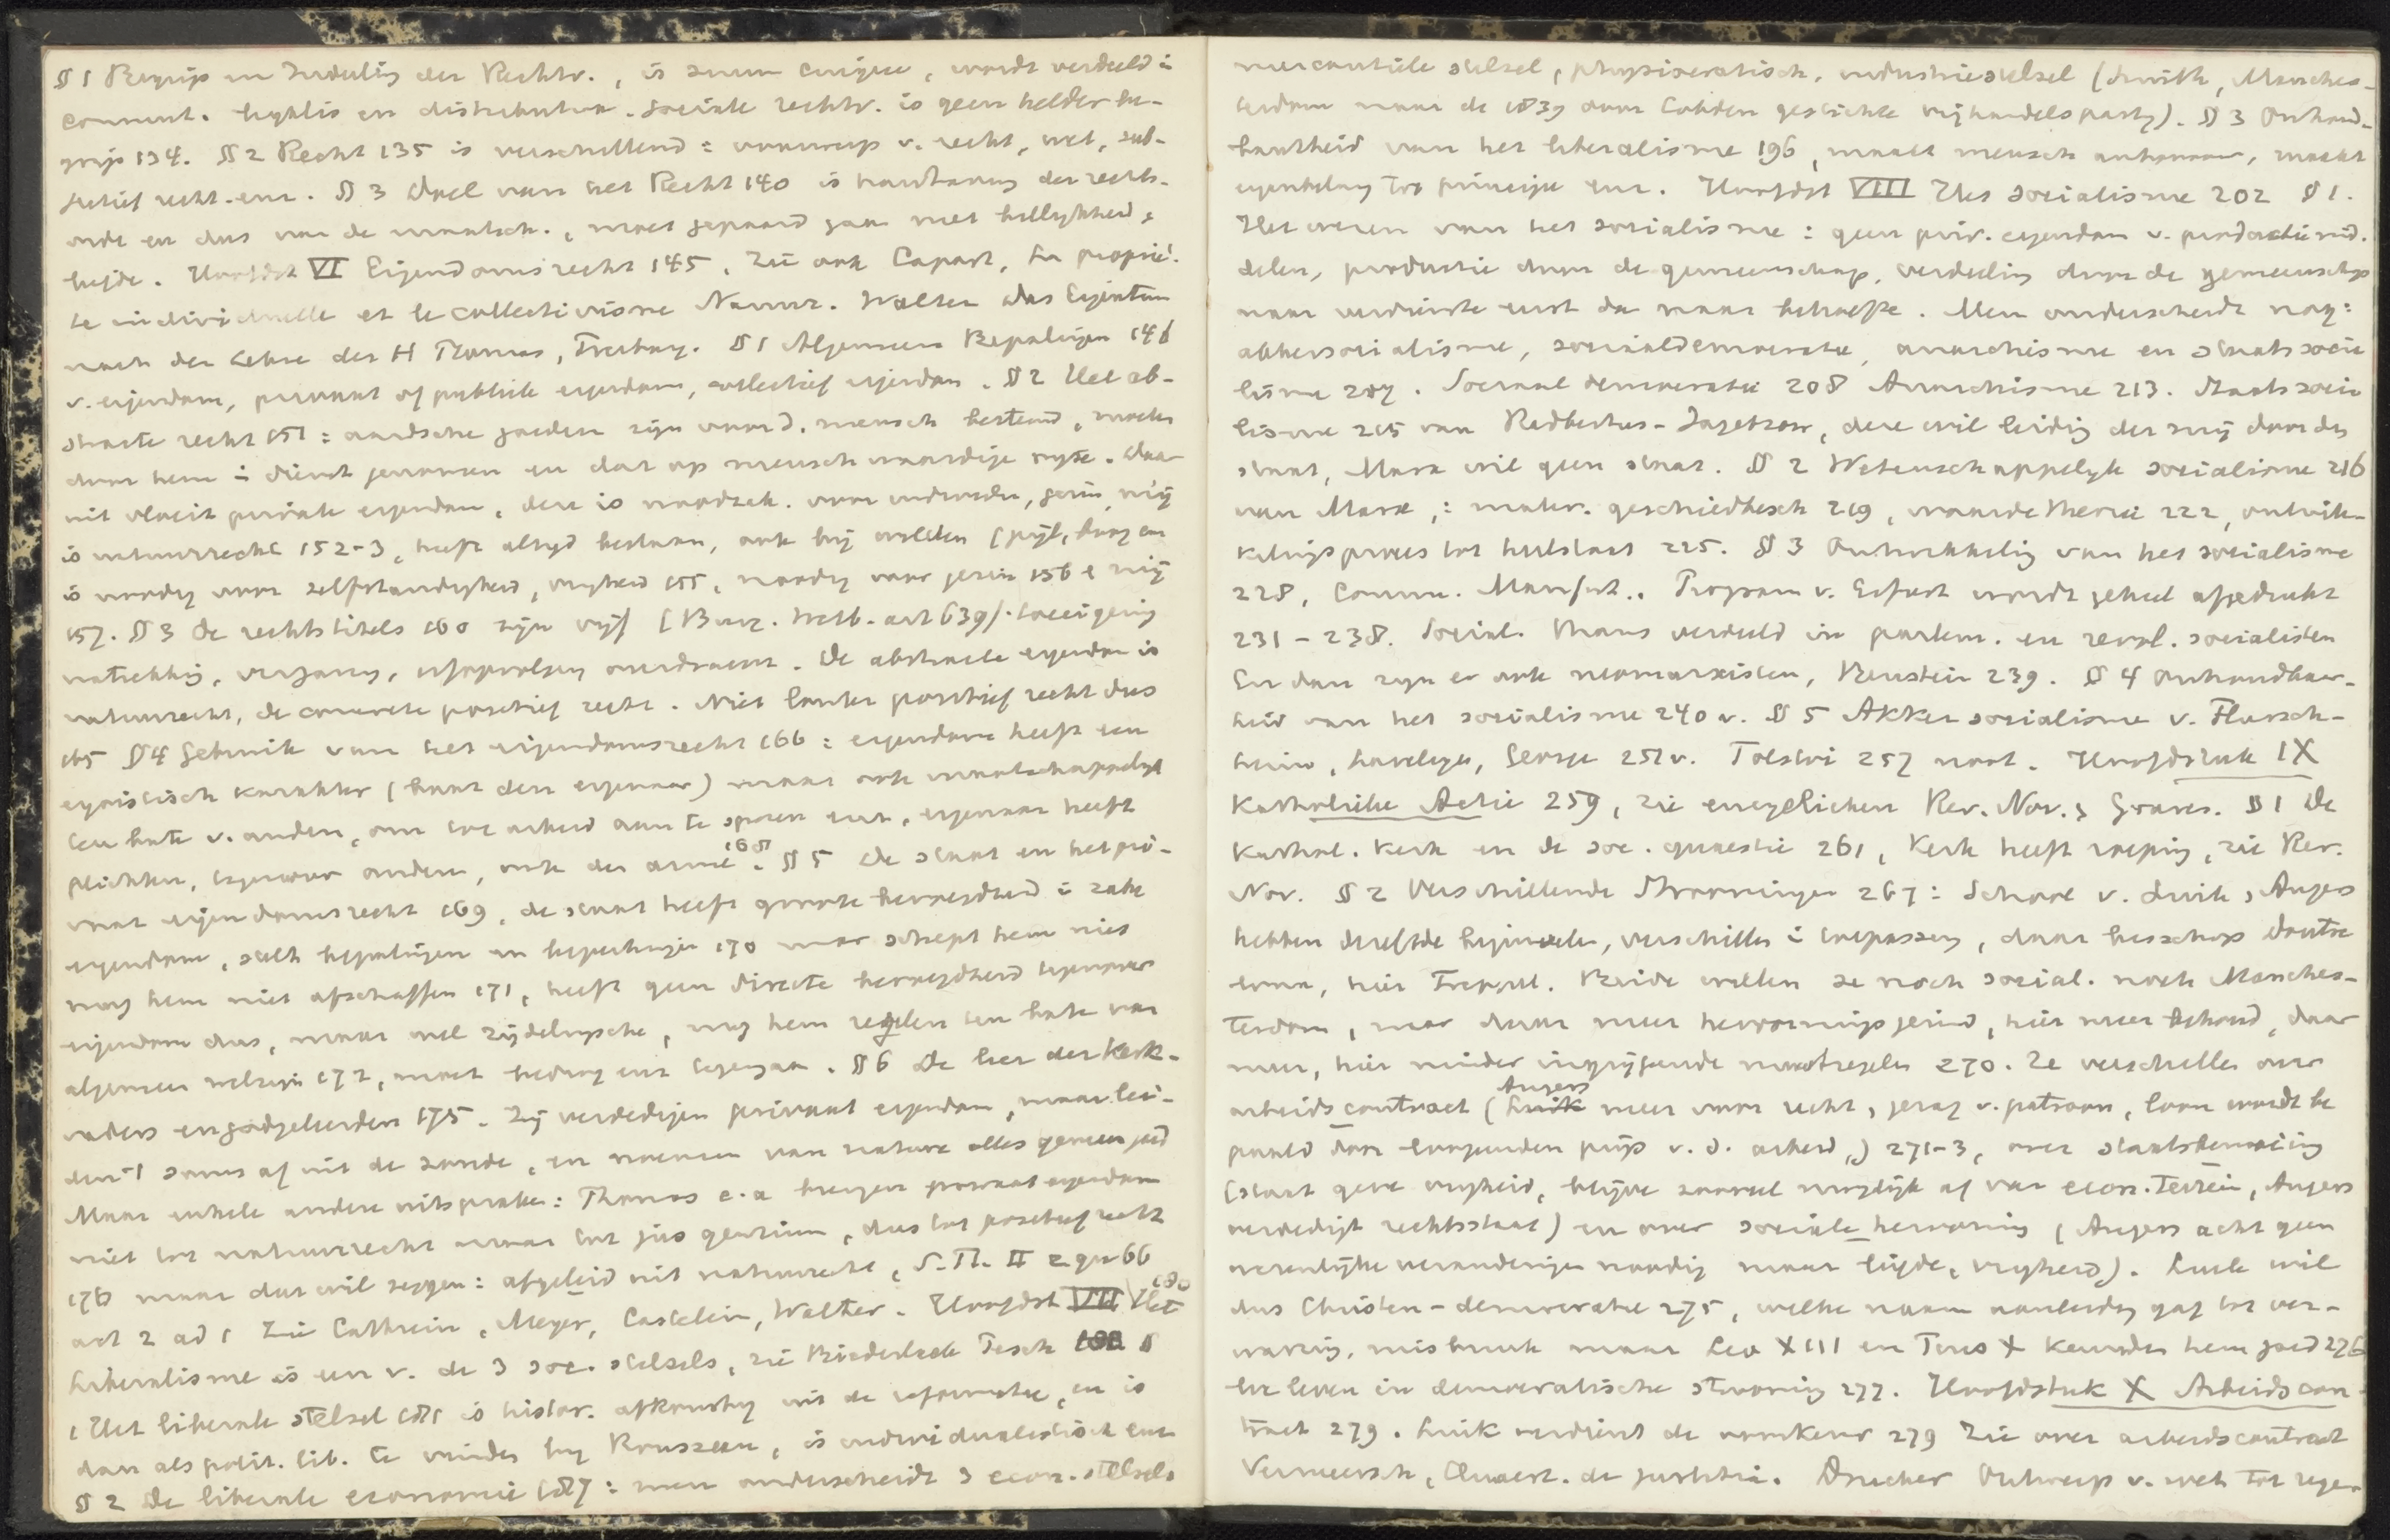 § 1 Begrip en Indeeling der Rechtv., is suum cuique, wordt verdeeld i
commut. legalis en distributiva. Sociale rechtv. is geen helder be-
grip 134. §§ 2 Recht 135 is verschillend: voorwerp v. recht, wet, sub-
jectief recht enz. § 3 Doel van het Recht 140 is handhaving der rechts-
orde en dus van de maatsch., moet gepaard gaan met billijkheid,
liefde. Hoofdst VI Eigendomsrecht 145, zie ook Capart, La proprié-
té individuelle et le collectivisme Namur. Walter Das Eigentum
nach der Lehre des H Thomas, Freiburg. § 1 Algemeene Bepalingen 146
v. eigendom, privaat of publiek eigendom, collectief eigendom. § 2 Het ab-
stracte recht 151: aardsche goederen zijn voor d. mensch bestemd, moeten
door hem i dienst genomen en dat op menschwaardige wijze. Daar
uit vloeit private eigendom, deze is noodzak. voor individu, gezin, mij
is natuurrecht 152-3, heeft altijd bestaan, ook bij wilden (pijl, boog en
is noodig voor zelfstandigheid, vrijheid 155, noodig voor gezin 156 e mij
157. § 3 De rechtstitels 160 zijn vijf (Burg. Wetb. art 639): toeeigening
natrekking, verjaring, erfopvolging overdracht. De abstracte eigendom is
natuurrecht, de concrete positief recht. Niet louter positief recht dus
165 § 4 Gebruik van het eigendomsrecht 166: eigendom heeft een
egoistisch karakter (baat den eigenaar) maar ook maatschappelijk
ten bate v. anderen, om tot arbeid aan te sporen enz., eigenaar heeft
plichten, tegenover anderen, ook de armen 168. § 5 De staat en het pri-
vaat eigendomsrecht 169, de staat heeft groote bevoegdheid i zake
eigendom, stelt bepalingen en beperkingen 170 maar schept hem niet
mag hem niet afschaffen 171, heeft geen directe bevoegdheid tegenover
eigendom dus, maar wel zijdelingsche, mag hem regelen ten bate van
algemeen welzijn 172, moet bedrog enz tegengaan. § 6 De leer der Kerk-
vaders en godgeleerden 175. Zij verdedigen privaat eigendom, maar lei-
den 't soms af uit de zonde, en noemen van nature alles gemeen goed
Maar enkele andere uitspraken: Thomas e.a brengen privaat eigendom
niet tot natuurrecht maar tot jus gentium, dus tot positief recht
176 maar dat wil zeggen: afgeleid uit natuurrecht, S. Th. II 2 qu 66
art 2 ad 1 Zie Cathrein, Meyer, Castelein, Walter. Hoofdst VII Het 180
Liberalisme is een v. de 3 soc. stelsels, zie Biederlack Pesch §
1 Het liberale stelsel 181 is histor. afkomstig uit de reformatie, en is
dan als polit. lib. te vinden bij Rousseau, is individualistisch enz
§ 2 De liberale economie 187: men onderscheidt 3 econ. stelsels
mercantiele stelsel, physiocratisch, industriestelsel (Smith, Manches-
terdom naar de 1839 door Cobden gestichte vrijhandelspartij). § 3 Onhoud-
baarheid van het liberalisme 196, maakt mensch autonoom, maakt
eigenbelang tot principe enz. Hoofdst VIII Het socialisme 202 § 1.
Het wezen van het socialisme: geen priv. eigendom v. productiemid-
delen, productie door de gemeenschap, verdeeling door de gemeenschap
naar verdienste eerst dan naar behoefte. Men onderscheidt nog:
akkersocialisme, sociaaldemocratie, anarchisme en staatssocia
lisme 207. Sociaal democratie 208 Anarchisme 213. Staats socia
lisme 215 van Rodbertus-Jagetzow, deze wil leiding der mij door den
staat, Marx wil geen staat. § 2 Wetenschappelijk socialisme 216
van Marx,: mater. geschiedbesch 219, waardetheorie 222, ontwik-
kelingsproces tot heilstaat 225. § 3 Ontwikkeling van het socialisme
228, Comm. Manifest. Program v. Erfurt wordt geheel afgedrukt
231-238. Social. thans verdeeld in parlem. en revol. socialisten
En dan zijn er ook neomarxisten, Bernstein 239. § 4 Onhoudbaar-
heid van het socialisme 240 v. § 5 Akker socialisme v. Flursch-
heim, Laveleye, George 251v. Tolstoi 257 noot. Hoofdstuk IX
Katholieke Actie 259, zie encyclieken Rer. Nov. & Graves. § 1 De
Kathol. Kerk en de soc. quaestie 261, Kerk heeft roeping, zie Rer.
Nov. § 2 Verschillende Stroomingen 267: School v. Luik, Angers
hebben dezelfde beginselen, verschillen i toepassing, daar bisschop Doutre
loux, hier Freppel. Beide willen ze noch social. noch Manches-
terdom, maar daar meer hervormingsgezind, hier meer behoud, daar
meer, hier minder ingrijpende maatregelen 270. Ze verschillen over
arbeidscontract (Angers meer voor recht, gezag v. patroon, loon wordt be
paald door loopenden prijs v. d. arbeid,) 271-3, over staatsbemoeiing
(staat geve vrijheid, blijve zooveel mogelijk af van econ. terrein, Angers
verdedigt rechtsstaat) en over sociale hervorming (Angers acht geen
wezenlijke veranderingen noodig maar liefde, vrijheid). Luik wil
dus Christen-democratie 275, welke naam aanleiding gaf tot ver-
warring, misbruik maar Leo XIII en Pius X keurden hem goed 276
Er leven in democratische strooming 277. Hoofdstuk X Arbeidscon-
tract 279. Luik verdient de voorkeur 279 Zie over arbeidscontract
Vermeersch, Quaest. de justitia. Drucker Ontwerp v. wet tot rege-